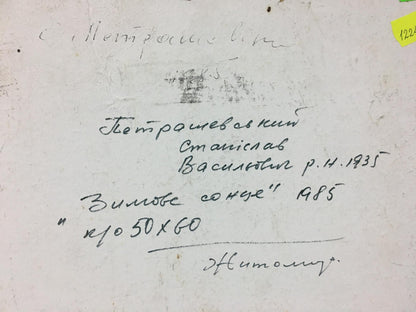 Петрашевський
Станіслав
Васильович р.н. 1935
"Зимове сонце" 1985
к/о 50х60
Житомир.